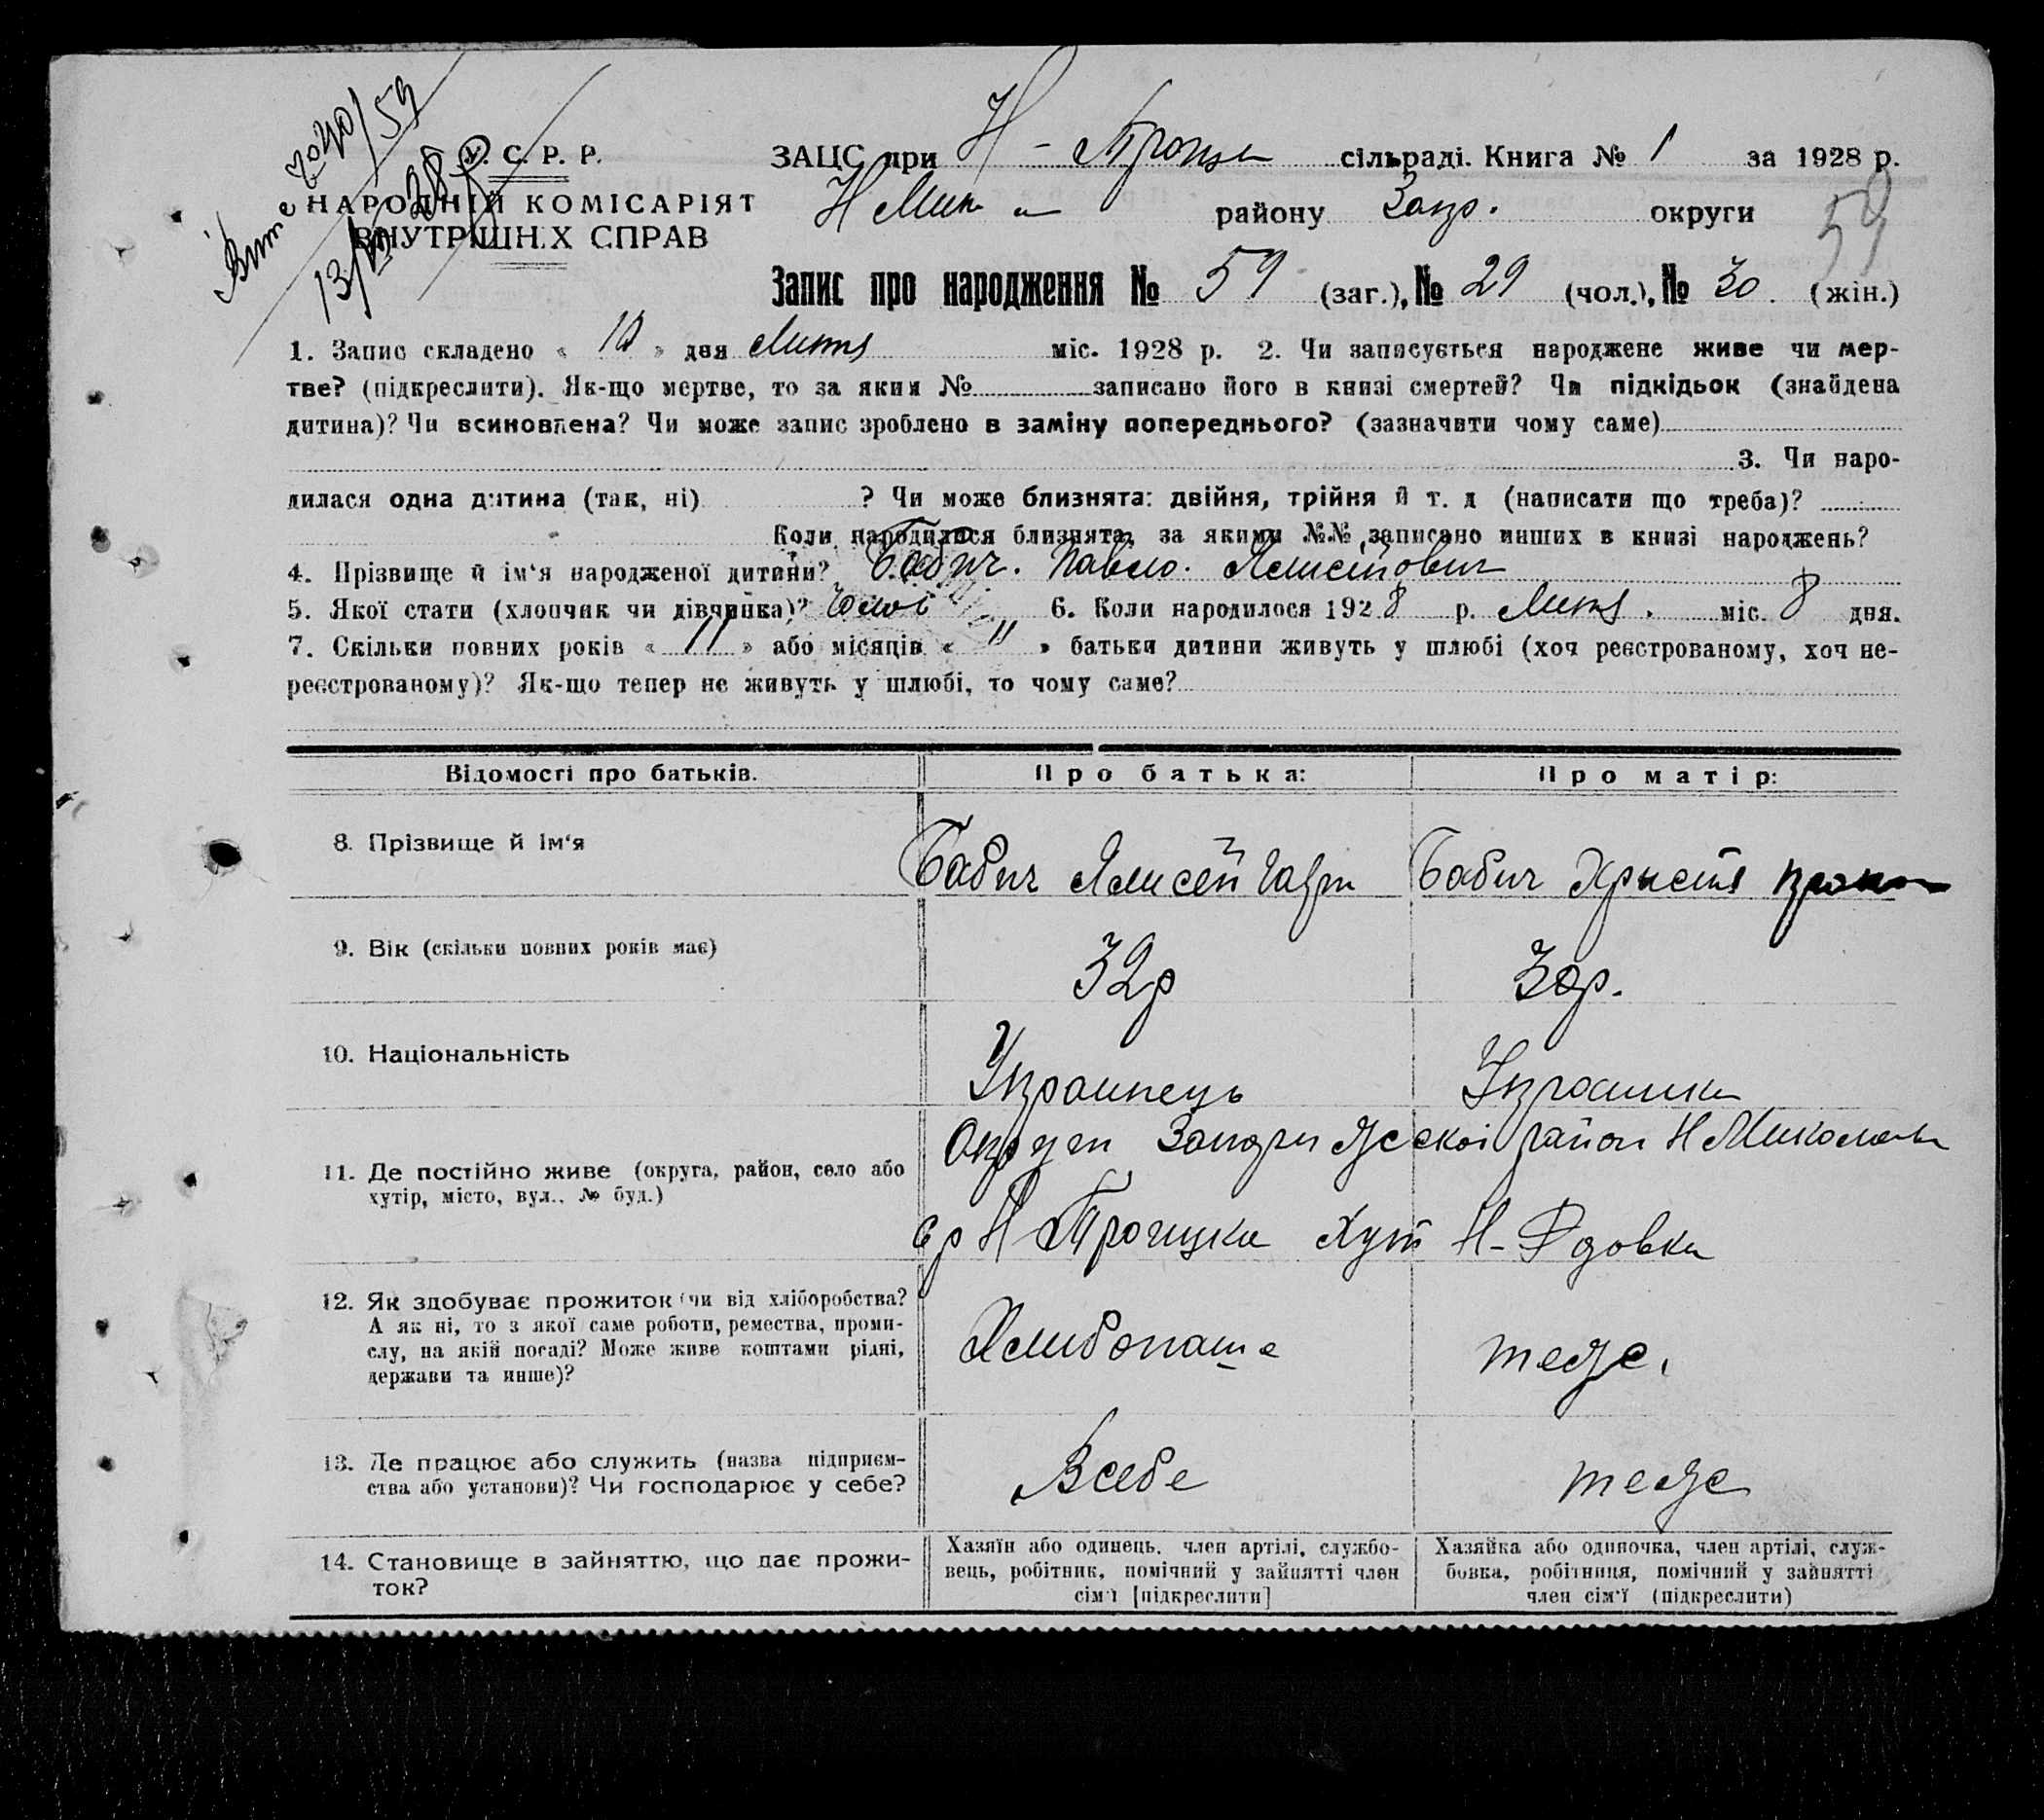 У. С. Р. Р.
НАРОДНІЙ КОМІСАРІЯТ
ВНУТРІШНІХ СПРАВ
ЗАЦС при Н - Троиц сільраді. Книга № 1 за 1928 р.
Н Мик району Запр. округи
59
Запис про народження № 59 (заг.), № 29 (чол.), № 30. (жін.)
1. Запис складено « 10 » дня Лютя міс. 1928 р. 2. Чи записується народжене живе чи мер-
тве? (підкреслити). Як-що мертве, то за яким № записано його в книзі смертей? Чи підкідьок (знайдена
дитина)? Чи всиновлена? Чи може запис зроблено в заміну попереднього? (зазначити чому саме)
3. Чи наро-
дилася одна дитина (так, ні) ? Чи може близнята: двійня, трійня й т. д (написати що треба)?
Коли народилися близнята, за якими №№ записано инших в книзі народжень?
4. Прізвище й ім‘я народженої дитини? Бабич. Павло.
5. Якої стати (хлопчик чи дівчинка)? 6. Коли народилося 1928 р. Лютя. міс. 8 дня.
7. Скільки повних років « 11 » або місяців « " » батьки дитини живуть у шлюбі (хоч реєстрованому, хоч не-
реєстрованому)? Як-що тепер не живуть у шлюбі, то чому саме?
Відомості про батьків. Про батька: Про матір:
8. Прізвище й ім‘я Бабич Ялисей Гавр Бабич Хрыстя
9. Вік (скільки повних років має) 32р 30р.
10. Національність Украинець Украинка
11. Де постійно живе (округа, район, село або
хутір, місто, вул., № буд.)
Н Троицка Хут Н-
12. Як здобуває прожиток (чи від хліборобства?
А як ні, то з якої саме роботи, ремества, проми-
слу, на якій посаді? Може живе коштами рідні,
держави та инше)?
Хлибопаше теже.
13. Де працює або служить (назва підприєм-
ства або установи)? Чи господарює у себе?
Всебе теже
14. Становище в зайняттю, що дає прожи-
ток?
Хазяїн або одинець, член артілі, службо-
вець, робітник, помічний у зайнятті член
сім‘ї [підкреслити]
Хазяйка або одиночка, член артілі, служ-
бовка, робітниця, помічний у зайнятті
член сім‘ї (підкреслити)